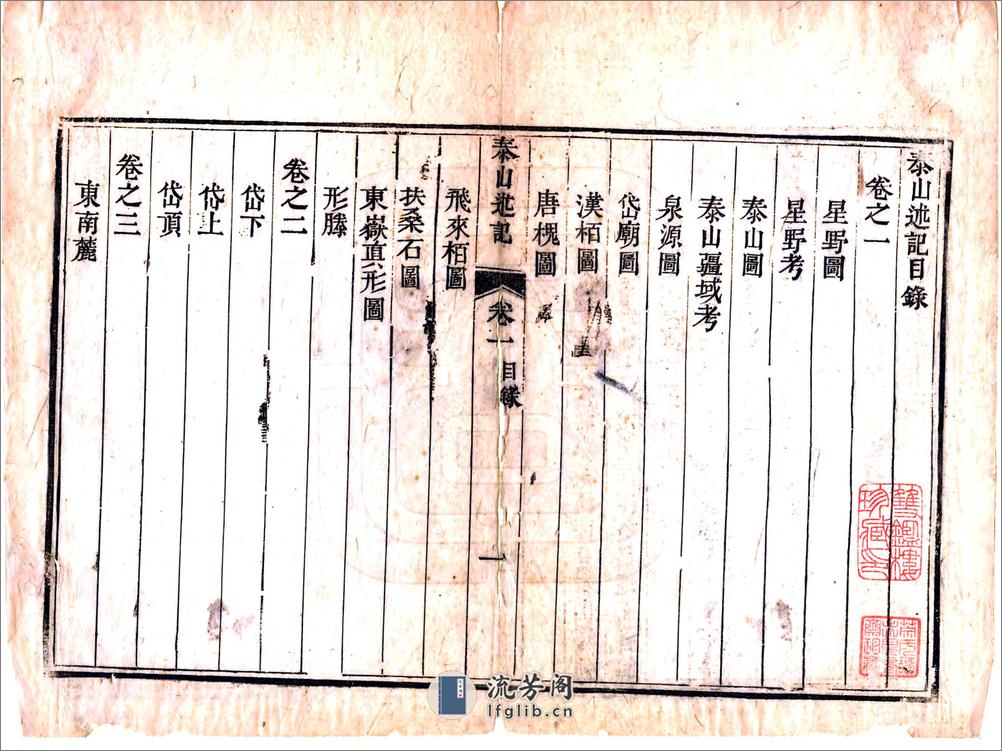 泰山述記目錄
卷之一
星野圖
星野考
泰山圖
泰山疆域考
泉源圖
岱廟圖
漢栢圖
唐槐圖
泰山述記
卷一
目錄
一
飛來栢圖
扶桑石圖
東嶽真形圖
形勝
卷之二
岱下
岱上
岱頂
卷之三
東南麓
雙鑑樓
珍藏印
流芳阁
lfglib.cn